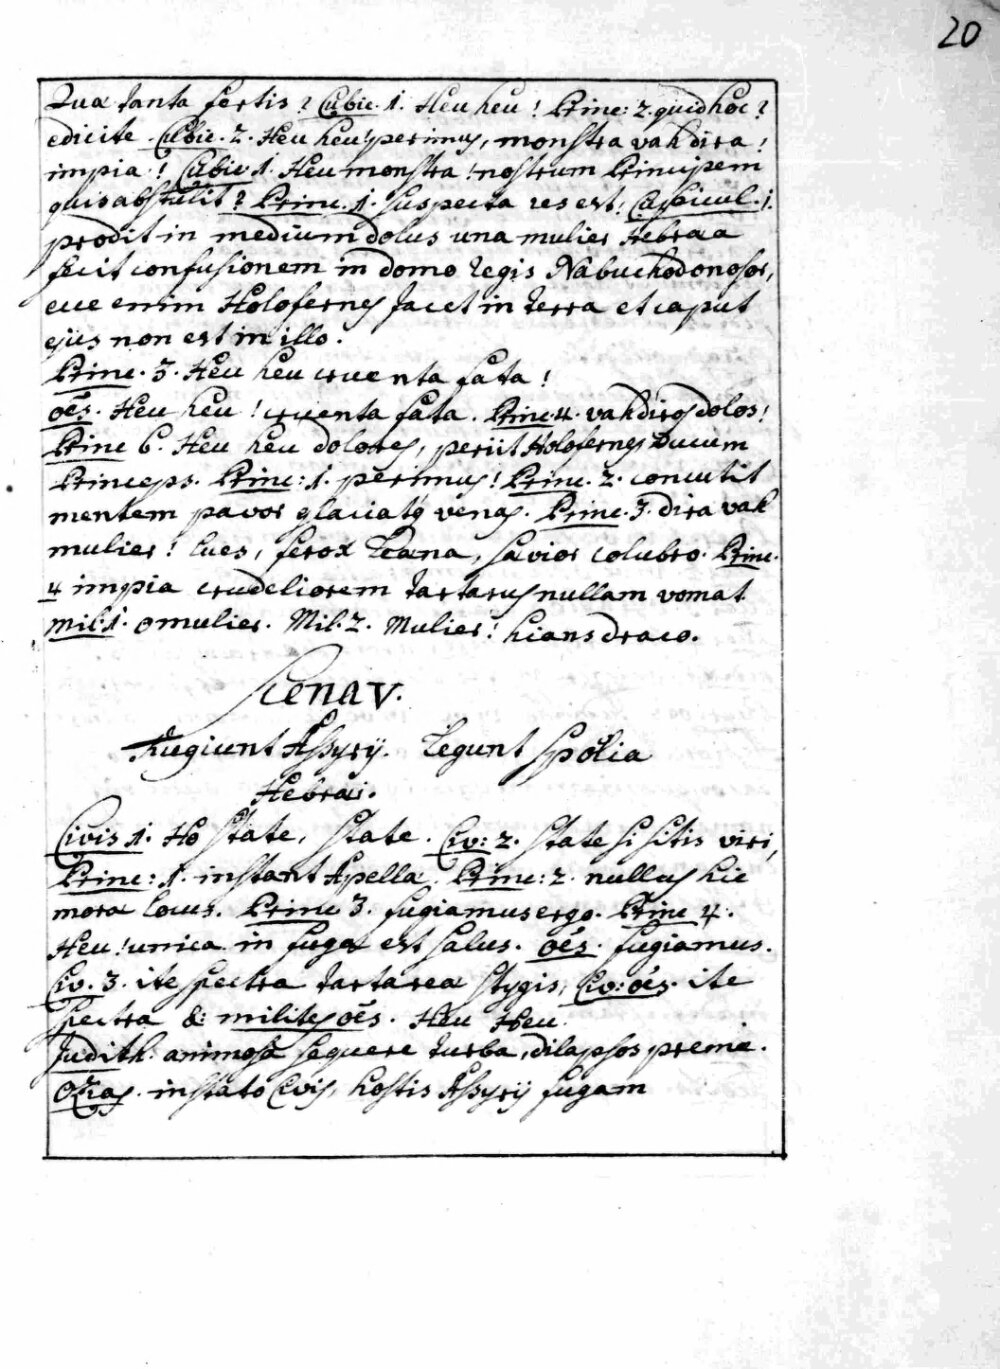 20
Quæ tanta fertis? Cubic. 1. Heu heu! Princ: 2. quid hoc?
edicite. Cubic. 2. Heu heu! perimus, monstra vah dira!
impia! Cubic 1. Heu monstra! nostrum Principem
quis abstulit? Princ. 1. suspecta res est! Capicul. 1.
prodit in medium dolus una mulier Hebræa
fecit confusionem in domo regis Nabuchodonosor,
ecce enim Holofernes jacet in terra et caput
ejus non est in illo.
Princ. 3. Heu heu cruenta fata!
oēs. Heu heu! cruenta fata. Princ. 4. vah diros dolos!
Princ 6. Heu heu dolores, periit Holofernes Ducum
Princeps. Princ: 1. perimus! Princ. 2. concutit
mentem pavor glaciatq venas. Princ. 3. dira vah
mulier! lues, ferox Leæna, sævior colubro. Princ.
4 impia crudeliorem tartarus nullam vomat.
Mil: 1. o mulier. Mil. 2. Mulier! hians draco.
Scena V.
Fugiunt Assyrij. Legunt Spolia
Hebræi.
Civis 1. Ho State, State. Civ: 2. State si sitis viri,
Princ: 1. instant Apellæ. Princ: 2. nullus hic
moræ locus. Princ 3. fugiamus ergo. Princ 4.
Heu! unica in fuga est salus. oēs. fugiamus.
Civ. 3. ite spectra tartarea Stygis, Civ: oēs. ite
spectra &: milites oēs. Heu Heu
Judith. animosa sequere turba, dilapsos preme.
Ozias. instato Civis, hostis Assyrij fugam